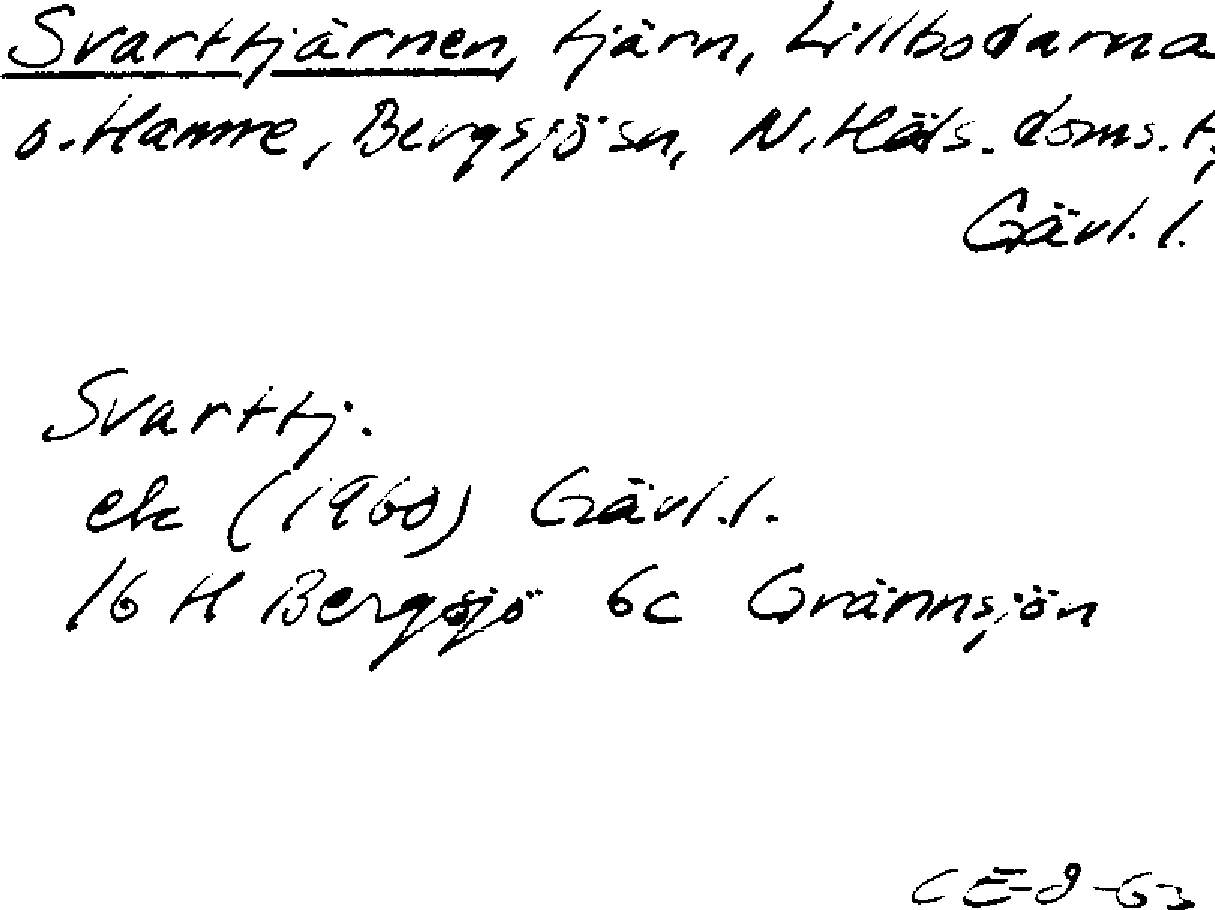 Svarttjärnen, tjärn, Lillbodarna
o. Hamre, Bergsjö sn, N. Häls. doms. t,
Gävl. l.
Svarttj.
ek (1960) Gävl. l.
16 H Bergsjö 6c Grännsjön
CE-8-63